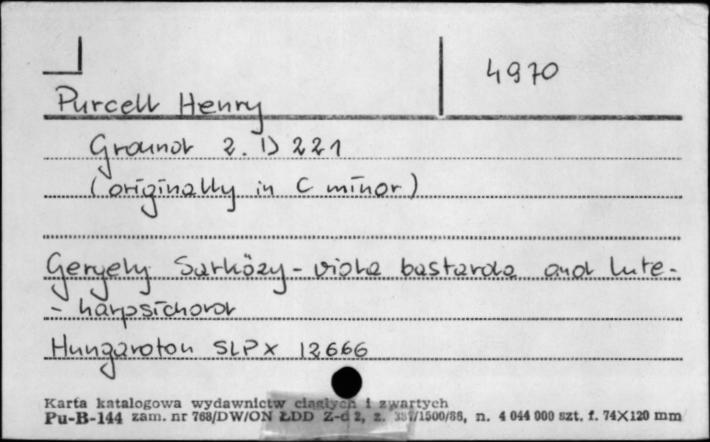 4970
Purcell Henry
Ground 2. D 221
(originally in C minor)
Gergely Sarközy - viola bastarda and lute-
- harpsichord
Hungaroton SLPX 12666
Karta katalogowa wydawnictw ciągłych i zwartych
Pu-B-144 zam. nr 768/DW/ON ŁDD Z-d 2, z. 357/1500/86, n. 4 044 000 szt. f. 74X120 mm